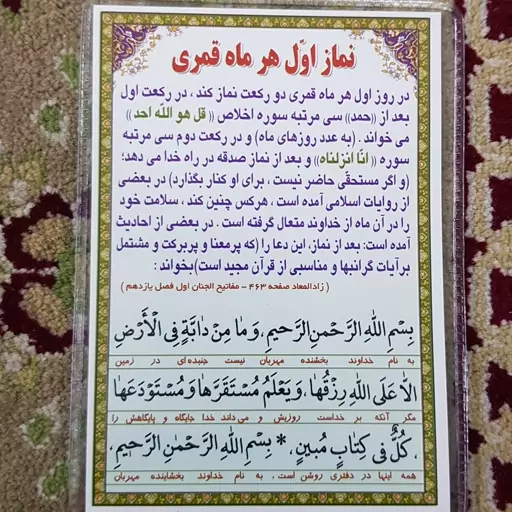 نماز اوّل هر ماه قمری
در روز اول هر ماه قمری دو رکعت نماز کند ، در رکعت اول
بعد از ((حمد)) سی مرتبه سوره اخلاص (( قل هو اللّه احد ))
می خواند . (به عدد روزهای ماه) و در رکعت دوم سی مرتبه
سوره (( انّا انزلناه)) و بعد از نماز صدقه در راه خدا می دهد؛
(و اگر مستحقّی حاضر نیست ، برای او کنار بگذارد) در بعضی
از روایات اسلامی آمده است ، هرکس چنین کند ، سلامت خود
را در آن ماه از خداوند متعال گرفته است . در بعضی از احادیث
آمده است: بعد از نماز، این دعا را (که پرمعنا و پربرکت و مشتمل
بر آیات گرانبها و مناسبی از قرآن مجید است)بخواند :
( زادالمعاد صفحه ۴۶۳ - مفاتیح الجنان اول فصل یازدهم )
بِسْمِ اللهِ الرَّحْمنِ الرَّحیمِ، وَ مٰا مِنْ دٰابَّةٍ فِی الْأَرْضِ
به نام خداوند بخشنده مهربان نیست جنبنده ای در زمین
اِلّا عَلَی اللهِ رِزْقُهٰا، وَ یَعْلَمُ مُسْتَقَرَّهٰا وَ مُسْتَوْدَعَهٰا
مگر آنکه بر خداست روزیش و می داند خدا جایگاه و پایگاهش را
، کُلٌّ فی کِتٰابٍ مُبینٍ ، * بِسْمِ اللهِ الرَّحْمٰنِ الرَّحیمِ،
همه اینها در دفتری روشن است . به نام خداوند بخشاینده مهربان